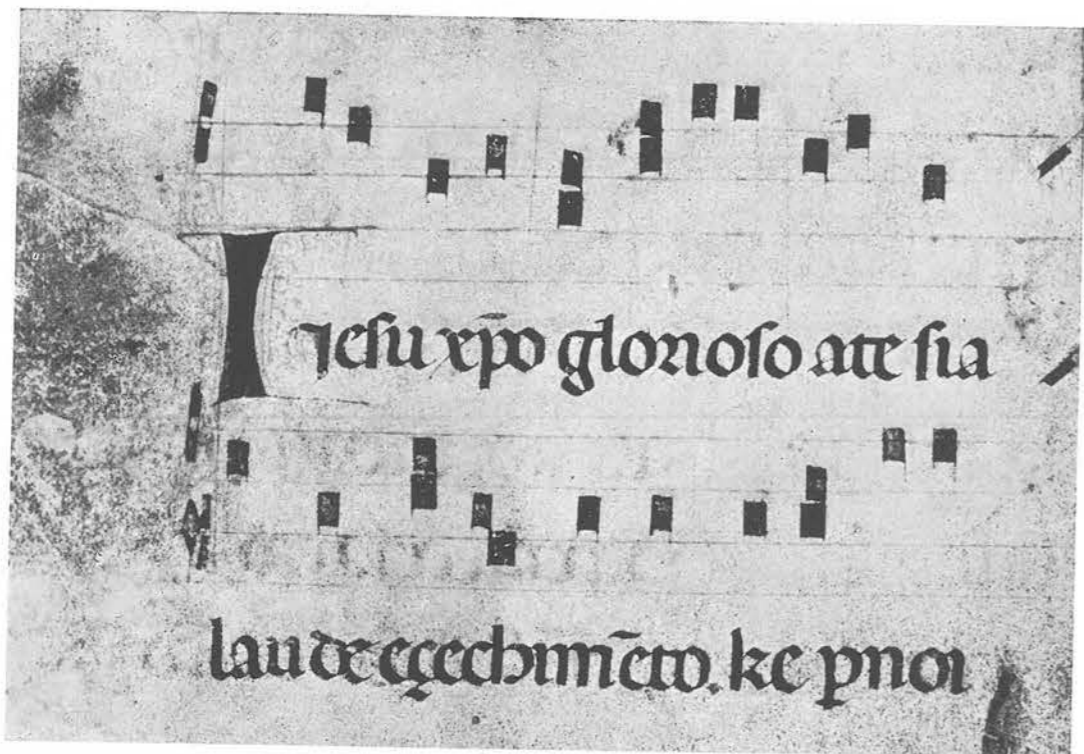 I Jesu xp̄o glorioso ate sia
laude eçechimēto. ke pnoi